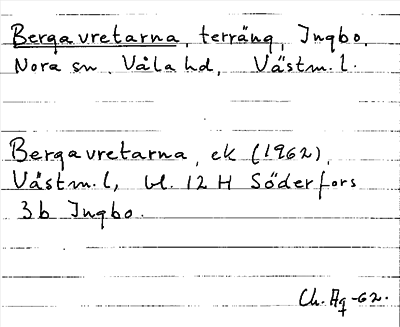 Bergavretarna, terräng, Ingbo,
Nora sn. Våla hd, Västm. l.
Bergavretarna, ek (1962),
Västm. l, bl. 12 H Söderfors
3b Ingbo.
Ch. Ag -62.